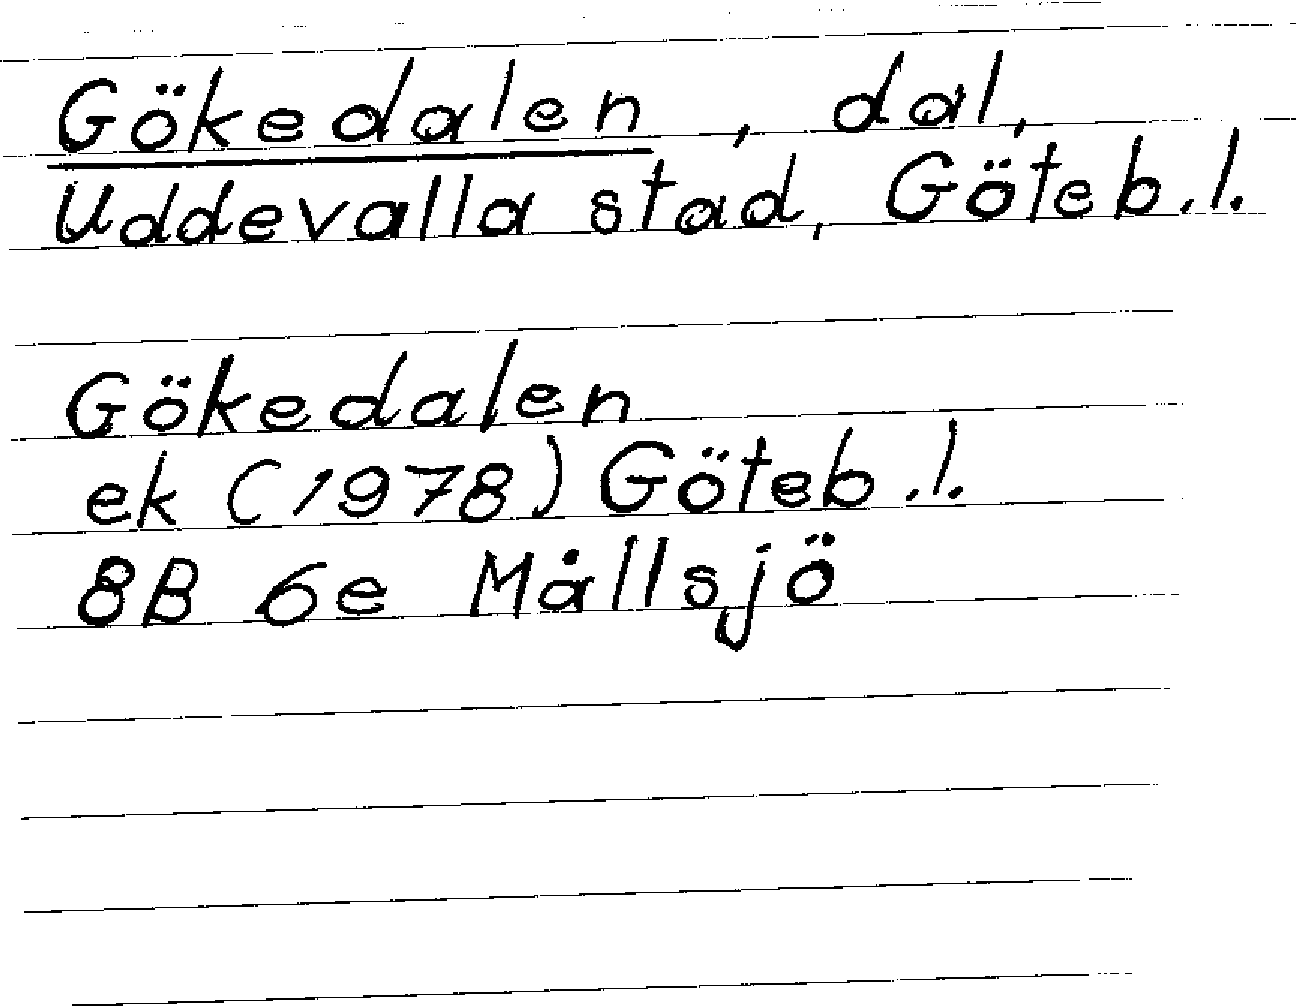 Gökedalen, dal,
Uddevalla stad, Göteb.l.
Gökedalen
ek (1978) Göteb.l.
8B 6e Mållsjö